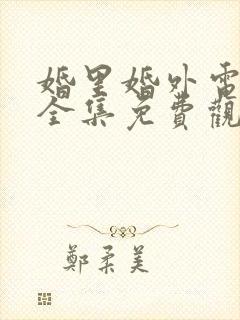 婚里婚外電
全集免費觀
鄭柔美